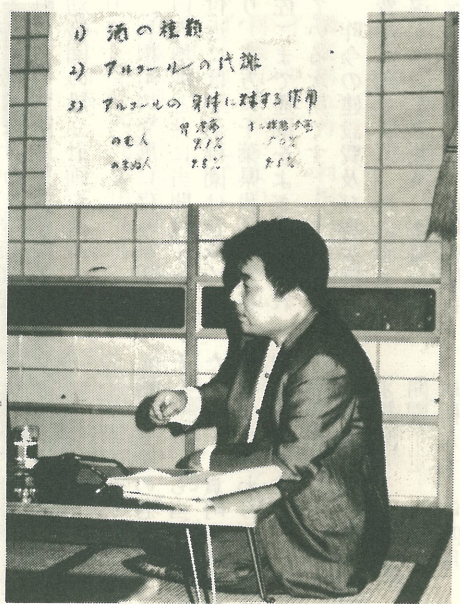 1) 酒の種類
2) アルコールの代謝
3) アルコールの身体に対する作用
胃潰瘍 十二指腸潰瘍
のむ人
のまぬ人